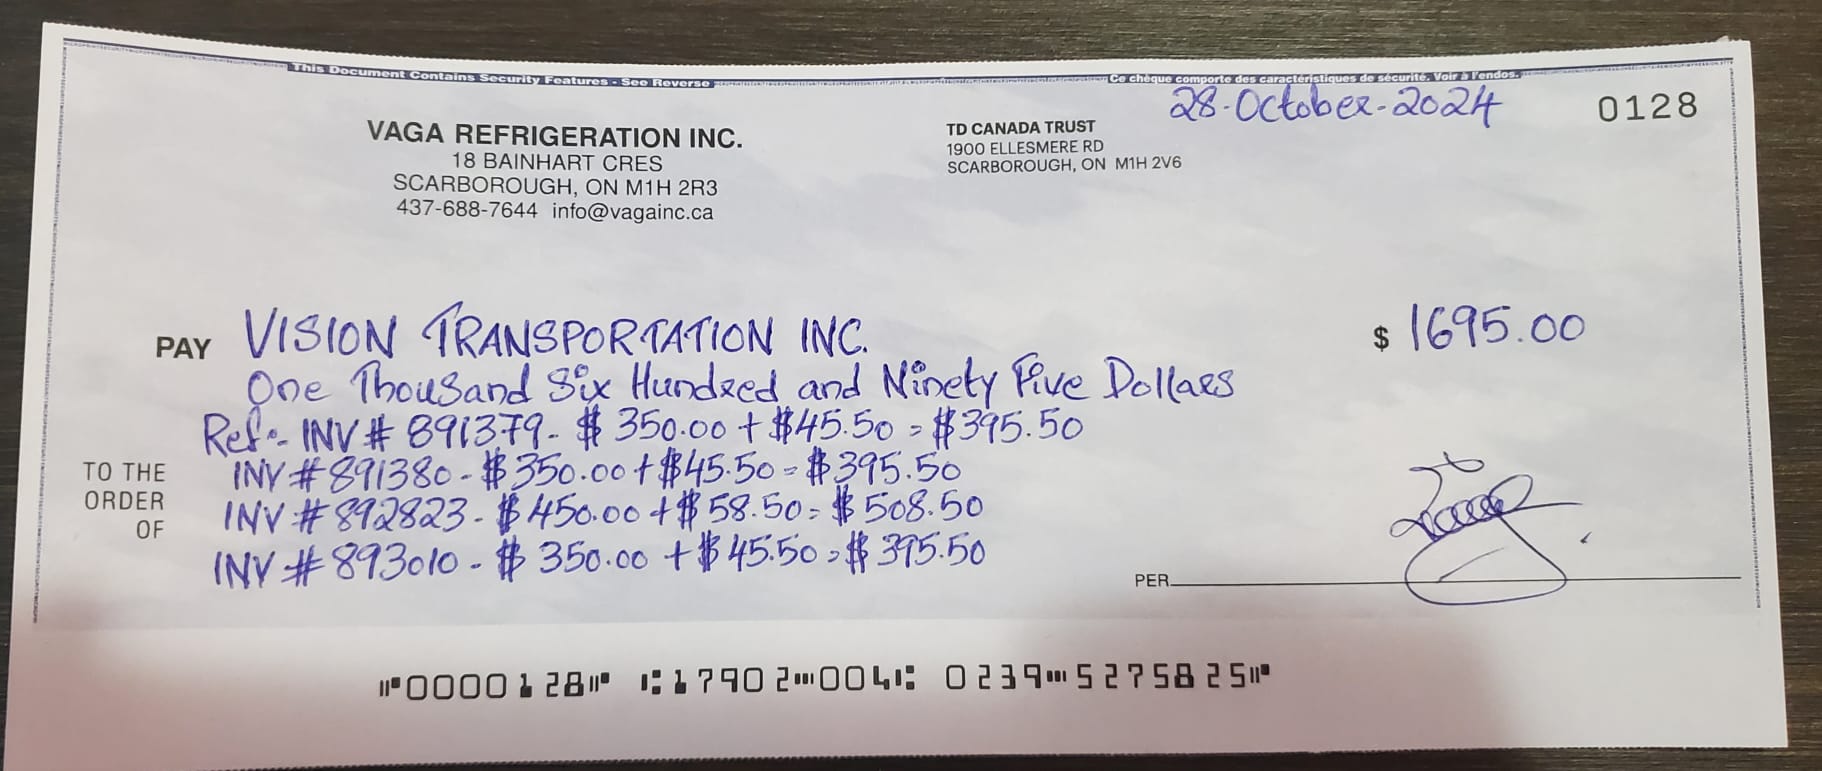 This Document Contains Security Features - See Reverse
Ce chèque comporte des caractéristiques de sécurité. Voir à l'endos.
28-October-2024
0128
VAGA REFRIGERATION INC.
18 BAINHART CRES
SCARBOROUGH, ON M1H 2R3
437-688-7644 info@vagainc.ca
TD CANADA TRUST
1900 ELLESMERE RD
SCARBOROUGH, ON M1H 2V6
PAY VISION TRANSPORTATION INC. $ 1695.00
One Thousand Six Hundred and Ninety Five Dollars
Ref:- INV # 891379 - $ 350.00 + $45.50 = $395.50
INV # 891380 - $350.00 + $45.50 = $395.50
INV # 892823 - $450.00 + $58.50 = $508.50
INV # 893010 - $ 350.00 + $45.50 = $395.50
TO THE
ORDER
OF
PER
⑈0000128⑈ ⑆17902⑉004⑆ 0239⑉5275825⑈